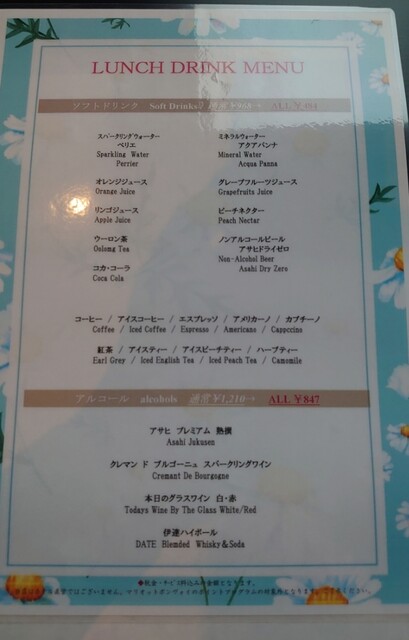 LUNCH DRINK MENU
ソフトドリンク Soft Drinks 通常￥968→ ALL ￥484
スパークリングウォーター
ペリエ
Sparkling Water
Perrier
ミネラルウォーター
アクアパンナ
Mineral Water
Acqua Panna
オレンジジュース
Orange Juice
グレープフルーツジュース
Grapefruits Juice
リンゴジュース
Apple Juice
ピーチネクター
Peach Nectar
ウーロン茶
Oolomg Tea
ノンアルコールビール
アサヒドライゼロ
Non-Alcohol Beer
Asahi Dry Zero
コカ・コーラ
Coca Cola
コーヒー / アイスコーヒー / エスプレッソ / アメリカーノ / カプチーノ
Coffee / Iced Coffee / Espresso / Americano / Capccino
紅茶 / アイスティー / アイスピーチティー / ハーブティー
Earl Grey / Iced English Tea / Iced Peach Tea / Camomile
アルコール alcohols 通常￥1,210→ ALL ￥847
アサヒ プレミアム 熟撰
Asahi Jukusen
クレマン ド ブルゴーニュ スパークリングワイン
Cremant De Bourgogne
本日のグラスワイン 白・赤
Todays Wine By The Glass White/Red
伊達ハイボール
DATE Blemded Whisky＆Soda
◆税金・サービス料込みの金額となります。
ではございません。マリオットボンヴォイのポイントプログラムの対象外となります。ご了承ください。